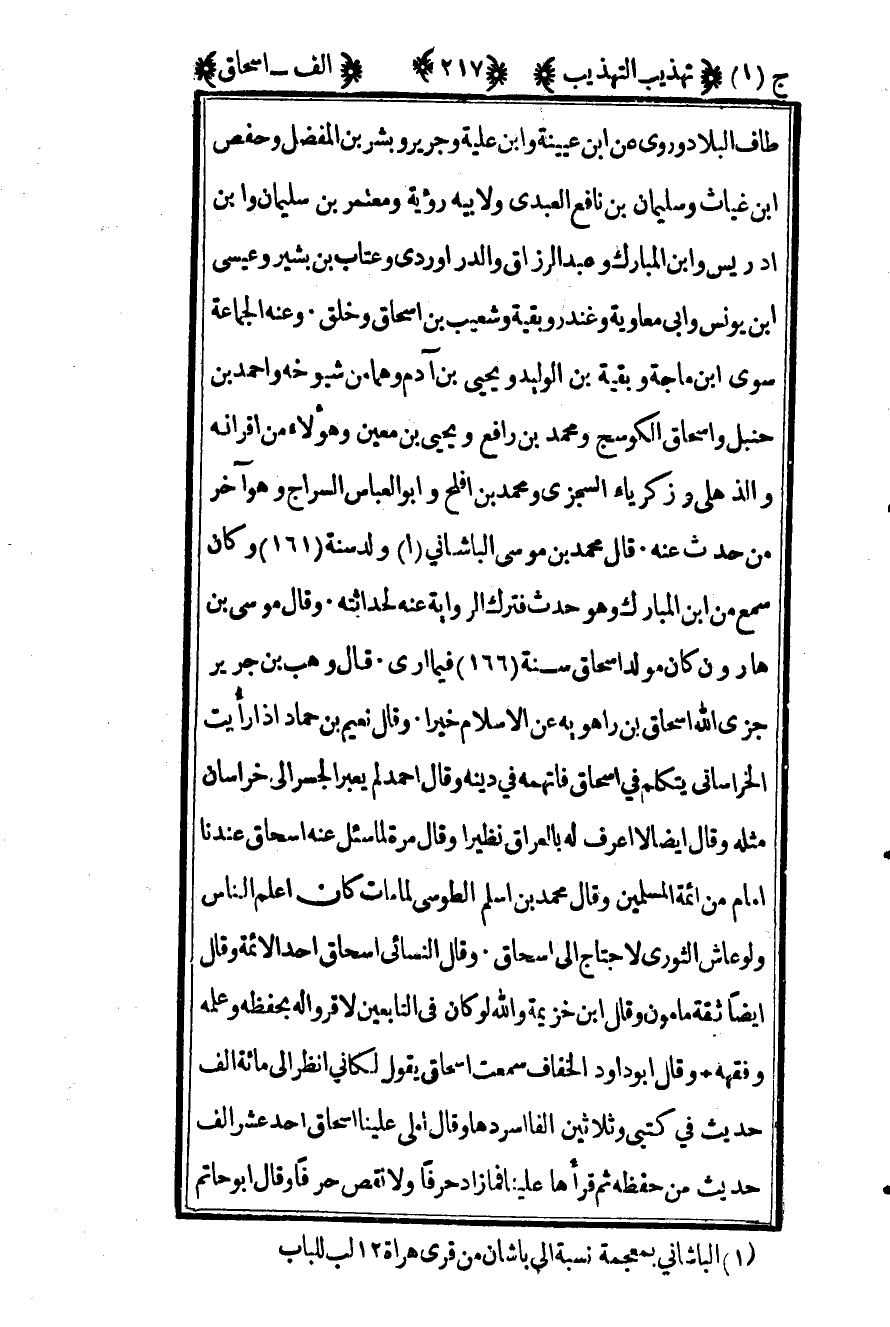 ج (١) ﴿ تهذيب التهذيب ﴾ ﴿٢١٧﴾ ﴿ الف ـ اسحاق ﴾
طاف البلاد وروى عن ابن عيينة وابن علية وجرير وبشر بن المفضل وحفص
ابن غياث وسليمان بن نافع العبدى ولابيه رؤية ومعتمر بن سليمان وابن
ادريس وابن المبارك وعبد الرزاق والدراوردى وعتاب بن بشير وعيسى
ابن يونس وابى معاوية وغندر وبقية وشعيب بن اسحاق وخلق ٠ وعنه الجماعة
سوى ابن ماجة وبقية بن الوليد ويحيى بن آدم وهما من شيوخه واحمد بن
حنبل واسحاق الكوسج ومحمد بن رافع ويحيى بن معين وهؤلاء من اقرانه
والذهلى وزكرياء السجزى ومحمد بن افلح وابو العباس السراج وهو آخر
من حدث عنه ٠ قال محمد بن موسى الباشاني (١) ولد سنة (١٦١) وكان
سمع من ابن المبارك وهو حدث فترك الرواية عنه لحداثته ٠ وقال موسى بن
هارون كان مولد اسحاق سنة (١٦٦) فيما ارى ٠ قال وهب بن جرير
جزى الله اسحاق بن راهويه عن الاسلام خيرا ٠ وقال نعيم بن حماد اذا رأيت
الخراسانى يتكلم في اسحاق فاتهمه في دينه وقال احمد لم يعبر الجسر الى خراسان
مثله وقال ايضا لا اعرف له بالعراق نظيرا وقال مرة لما سئل عنه اسحاق عندنا
امام من ائمة المسلمين وقال محمد بن اسلم الطوسى لما مات كان اعلم الناس
ولو عاش الثورى لاحتاج الى اسحاق ٠ وقال النسائى اسحاق احد الائمة وقال
ايضاً ثقة مامون وقال ابن خزيمة والله لو كان فى التابعين لاقروا له بحفظه وعلمه
وفقهه ٠ وقال ابو داود الخفاف سمعت اسحاق يقول لكاني انظر الى مائة الف
حديث في كتبى وثلاثين الفا اسردها وقال املى علينا اسحاق احد عشر الف
حديث من حفظه ثم قرأها علينا فما زاد حرفاً ولا نقص حرفاً وقال ابو حاتم
(١) الباشاني بمعجمة نسبة الى باشان من قرى هراة ١٢ لب للباب